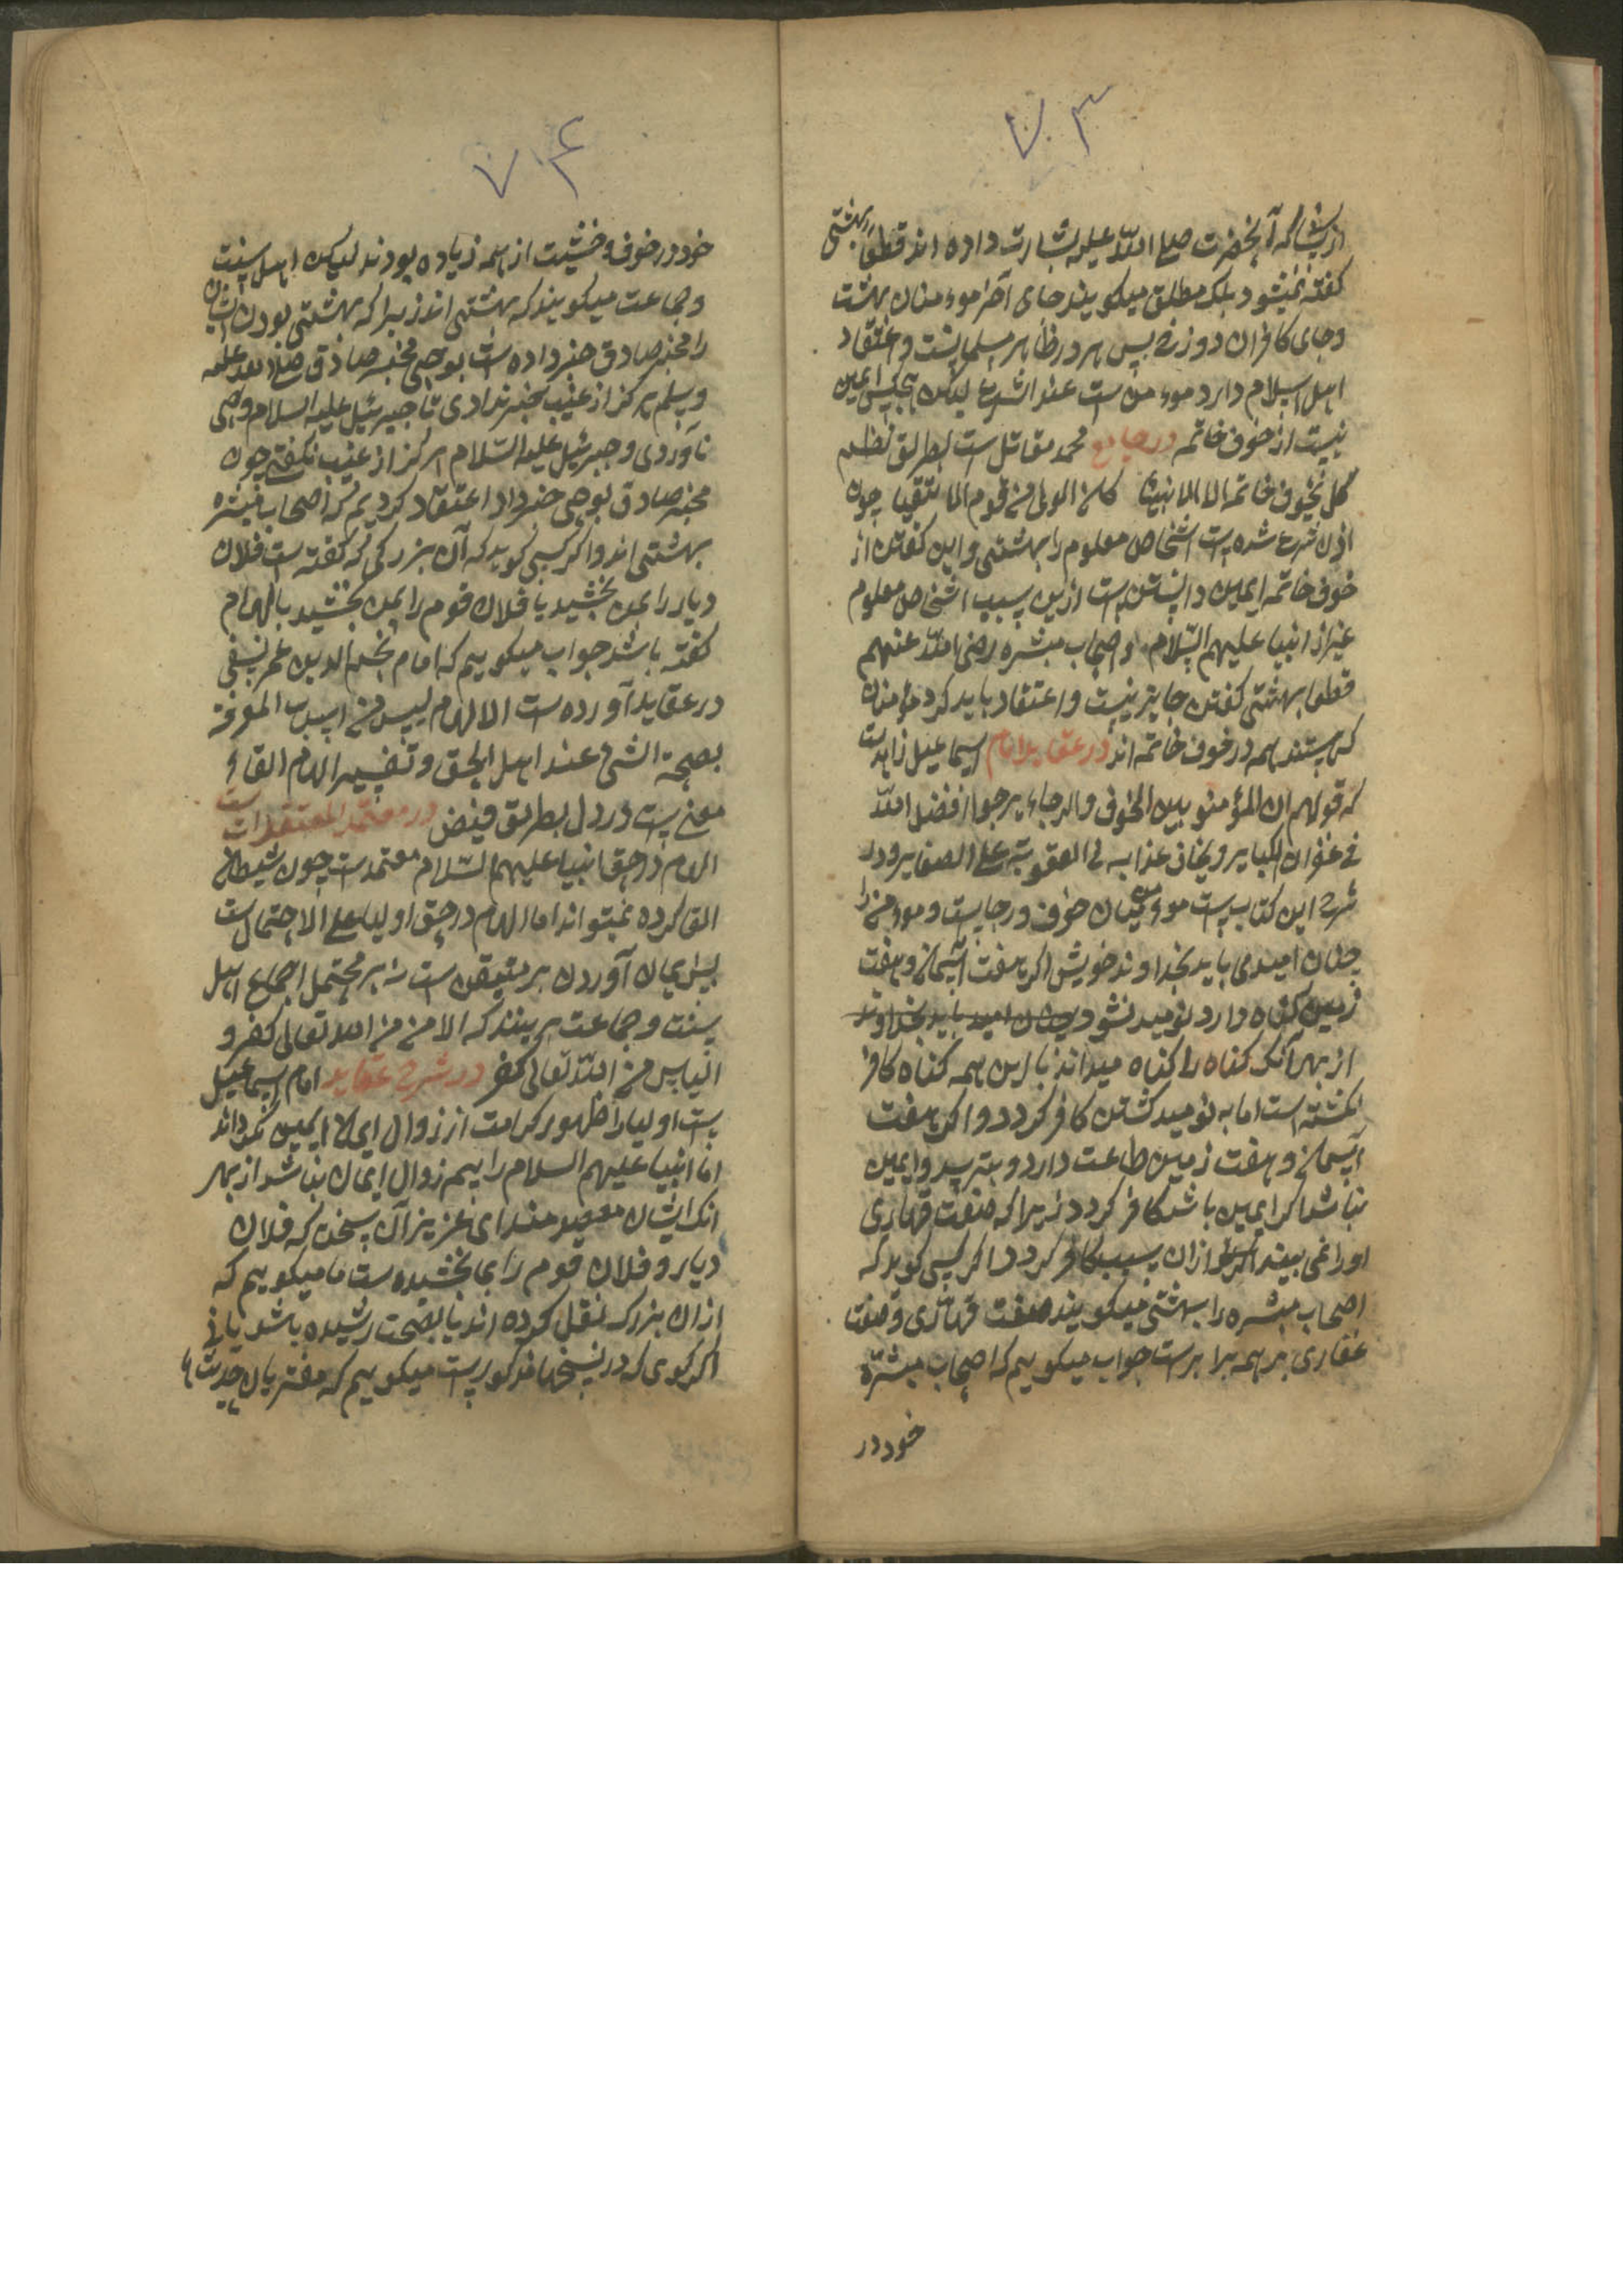 ۷۰۳
ازیشان که آنحضرت صلی الله علیه بشارت داده اند قطعاً بهشتی
کفته نمیشود بلکه مطلق میکویند جای آخر موءمنان بهشت
وجای کافران دوزخ پس هر در ظاهر مسلمانست و اعتقاد
اهل اسلام دارد موءمن ست عند الشرع لیکن هیچکس ایمن
نیست از خوف خاتمه در جامع محمد مقاتل ست بطریق نظم
کل یخوف خاتمه الا الانبیا کانه الولی من قوم الاتقیا چون
اذن شرع شده ست اشخاص معلوم را بهشتی و این کفتن از
خوف خاتمه ایمن دانستن ست ازین سبب اشخاص معلوم
غیر از انبیا علیهم السلام و اصحاب مبشره رضی الله عنهم
قطعا بهشتی کفتن جایز نیست و اعتقاد باید کرد مؤمنان
که هستند همه در خوف خاتمه اند در عقاید امام اسماعیل زاهدست
که قولهم ان المؤمنو بین الخوف والرجاء یرجوا فضل الله
فی غفران الکبایر و یخاف عذابه فی العقوبة علی الصغایر و در
شرح این کتاب ست موءمن میان خوف و رجاست و موءمن را
چنان امیدی باید بخداوند خویش اکر هفت آسمان و هفت
زمین کناه دارد نومید نشود چنان امید باید بخداوند
از بهر آنکه کناه را کناه میداند با این همه کناه کافر
نکشته است اما به نومید کشتن کافر کردد و اکر هفت
آسمان و هفت زمین طاعت دارد و بترسد و ایمن
نباشد اکر ایمن باشد کافر کردد زیرا که صفت قهاری
او را نمی بیند ازان سبب کافر کردد اکر کسی کوید که
اصحاب مبشره را بهشتی میکویند صفت قهاری و صفت
غفاری بر همه برابرست جواب میکوییم که اصحاب مبشره
خود در
۷۰۴
خود در خوف و خشیت از همه زیاده بودند لیکن اهل سنت
و جماعت میکویند که بهشتی اند زیرا که بهشتی بودن ایشان
را مخبر صادق خبر داده ست بوحی مخبر صادق صلی الله علیه
وسلم هرکز از غیب خبر ندادی تا جبرئیل علیه السلام وحی
نآوردی و جبرئیل علیه السلام هرکز از غیب نکفتی چون
مخبر صادق بوحی خبر داد اعتقاد کردیم که اصحاب مبشره
بهشتی اند و اکر کسی کوید که آن بزرکی که کفته ست فلان
دیار را بمن بخشید یا فلان قوم را بمن بخشید بالهام
کفته باشد جواب میکوییم که امام نجم الدین عمر نسفی
در عقاید آورده ست الالهام لیس من اسباب المعرفة
بصحة الشئ عند اهل الحق و تفسیر الهام القاء
معنی ست در دل بطریق فیض در معتمد المعتقدات ست
الهام در حق انبیا علیهم السلام معتمدست چون شیطان
القا کرده نمیتواند اما الهام در حق اولیا علی الاحتمال ست
پس ایمان آوردن بر متیقن ست نه بر محتمل اجماع اهل
سنت و جماعت برینند که الامن من الله تعالی کفر و
الیاس من الله تعالی کفر در شرح عقاید امام اسماعیل
ست اولیا را ظهور کرامت از زوال ایمان ایمن نکرداند
اما انبیا علیهم السلام را بیم زوال ایمان نباشد از بهر
آنک ایشان معصومند ای عزیز آن سخن که فلان
دیار و فلان قوم را بما بخشیده ست ما میکوییم که
ازان بزرک نقل کرده اند یا بصحت رسیده باشد یا نی
اکر کوی که در نسخها مذکورست میکوییم که مفتریان حدیث ها